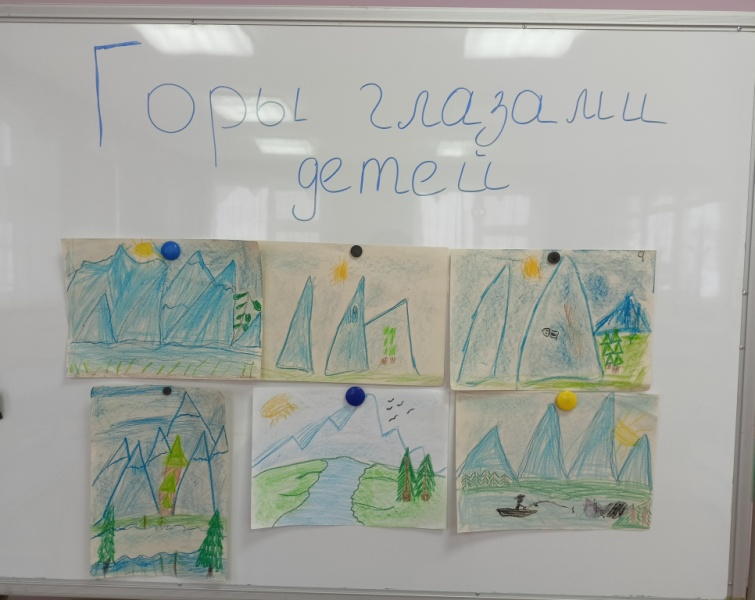 Горы глазами
детей